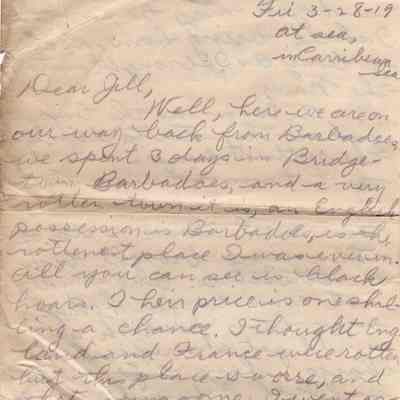 Fri 3-28-19
at sea,
in Carribean
sea
Dear Jill,
Well, here we are on
our way back from Barbadoes,
we spent 3 days in Bridge-
town, Barbadoes, and a very
rotten town it is, an English
possession is Barbadoes, is the
rottenest place I was ever in.
all you can see is black
hoars. Their price is one shil-
ling a chance. I thought Eng-
land and France were rotten
but this place is worse, and